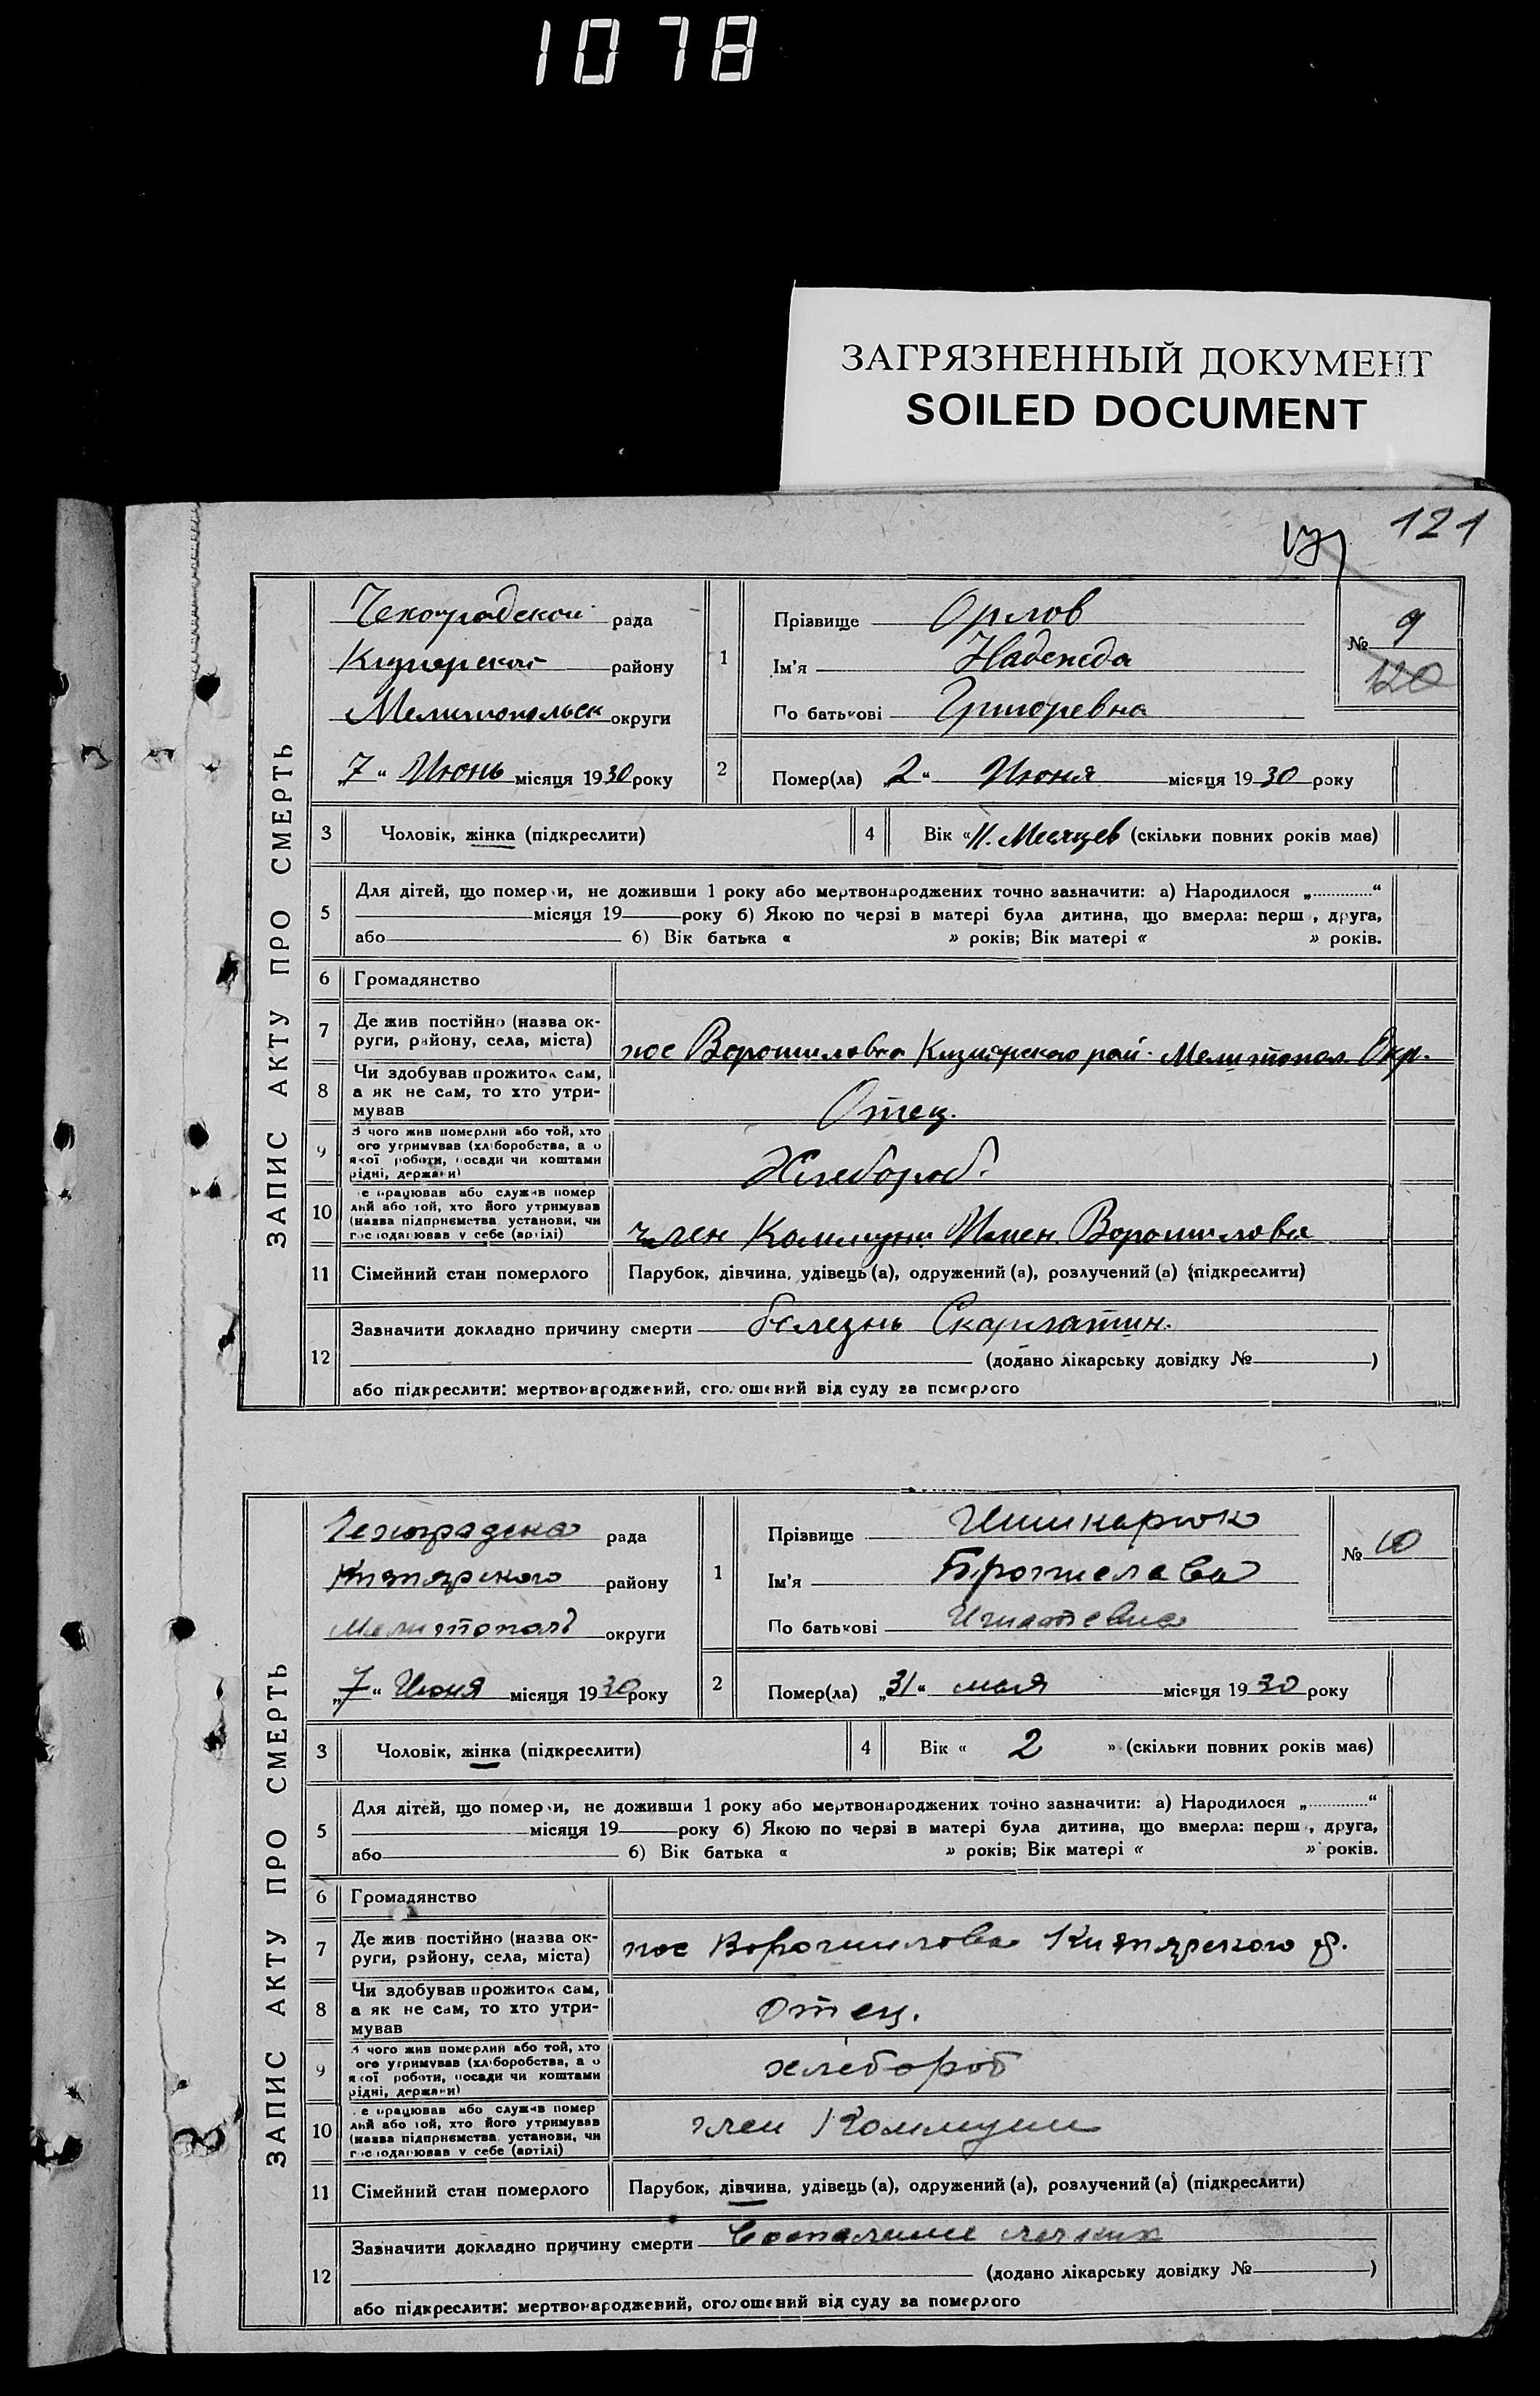 1078
ЗАГРЯЗНЕННЫЙ ДОКУМЕНТ
SOILED DOCUMENT
121
ЗАПИС АКТУ ПРО СМЕРТЬ
Чехоградской рада
Кизиярской району
Мелитопольск округи
„7“ Июнь місяця 1930 року
1
Прізвище Орлов
Ім'я Надежда
По батькові Григоревна
№ 9
120
2
Помер(ла) „2“ Июня місяця 1930 року
3 Чоловік, жінка (підкреслити)
4 Вік «11. Месяцев (скільки повних років має)
5 Для дітей, що померли, не доживши 1 року або мертвонароджених точно зазначити: а) Народилося „ “
місяця 19 року б) Якою по черзі в матері була дитина, що вмерла: перш , друга,
або б) Вік батька « » років; Вік матері « » років.
6 Громадянство
7 Де жив постійно (назва ок-
руги, району, села, міста)
пос Ворошиловка Кизиярского рай. Мелитопол. Окр.
8 Чи здобував прожиток сам,
а як не сам, то хто утри-
мував
Отец.
9 З чого жив померлий або той, хто
ого утримував (хліборобства, а о
якої роботи, посади чи коштами
рідні, держави)
Хлебороб.
10 е працював або служив помер
лий або той, хто його утримував
(назва підприємства установи, чи
господарював у себе (артілі)
член Коммуни Имен. Ворошилова
11 Сімейний стан померлого Парубок, дівчина, удівець (а), одружений (а), розлучений (а) (підкреслити)
12 Зазначити докладно причину смерти болезнь Скарлатин.
(додано лікарську довідку № )
або підкреслити: мертвонароджений, оголошений від суду за померлого
ЗАПИС АКТУ ПРО СМЕРТЬ
Чехоградска рада
Кизиярского району
Мелитополь округи
„7“ Июня місяця 1930 року
1
Прізвище
Ім'я
По батькові
№ 10
2
Помер(ла) „31“ мая місяця 1930 року
3 Чоловік, жінка (підкреслити)
4 Вік « 2 » (скільки повних років має)
5 Для дітей, що померли, не доживши 1 року або мертвонароджених точно зазначити: а) Народилося „ “
місяця 19 року б) Якою по черзі в матері була дитина, що вмерла: перш , друга,
або б) Вік батька « » років; Вік матері « » років.
6 Громадянство
7 Де жив постійно (назва ок-
руги, району, села, міста)
пос Ворошилова Кизиярского р.
8 Чи здобував прожиток сам,
а як не сам, то хто утри-
мував
отец.
9 З чого жив померлий або той, хто
ого утримував (хліборобства, а о
якої роботи, посади чи коштами
рідні, держави)
хлебороб
10 е працював або служив помер
лий або той, хто його утримував
(назва підприємства установи, чи
господарював у себе (артілі)
член Коммуни
11 Сімейний стан померлого Парубок, дівчина, удівець (а), одружений (а), розлучений (а) (підкреслити)
12 Зазначити докладно причину смерти Воспаление легких
(додано лікарську довідку № )
або підкреслити: мертвонароджений, оголошений від суду за померлого